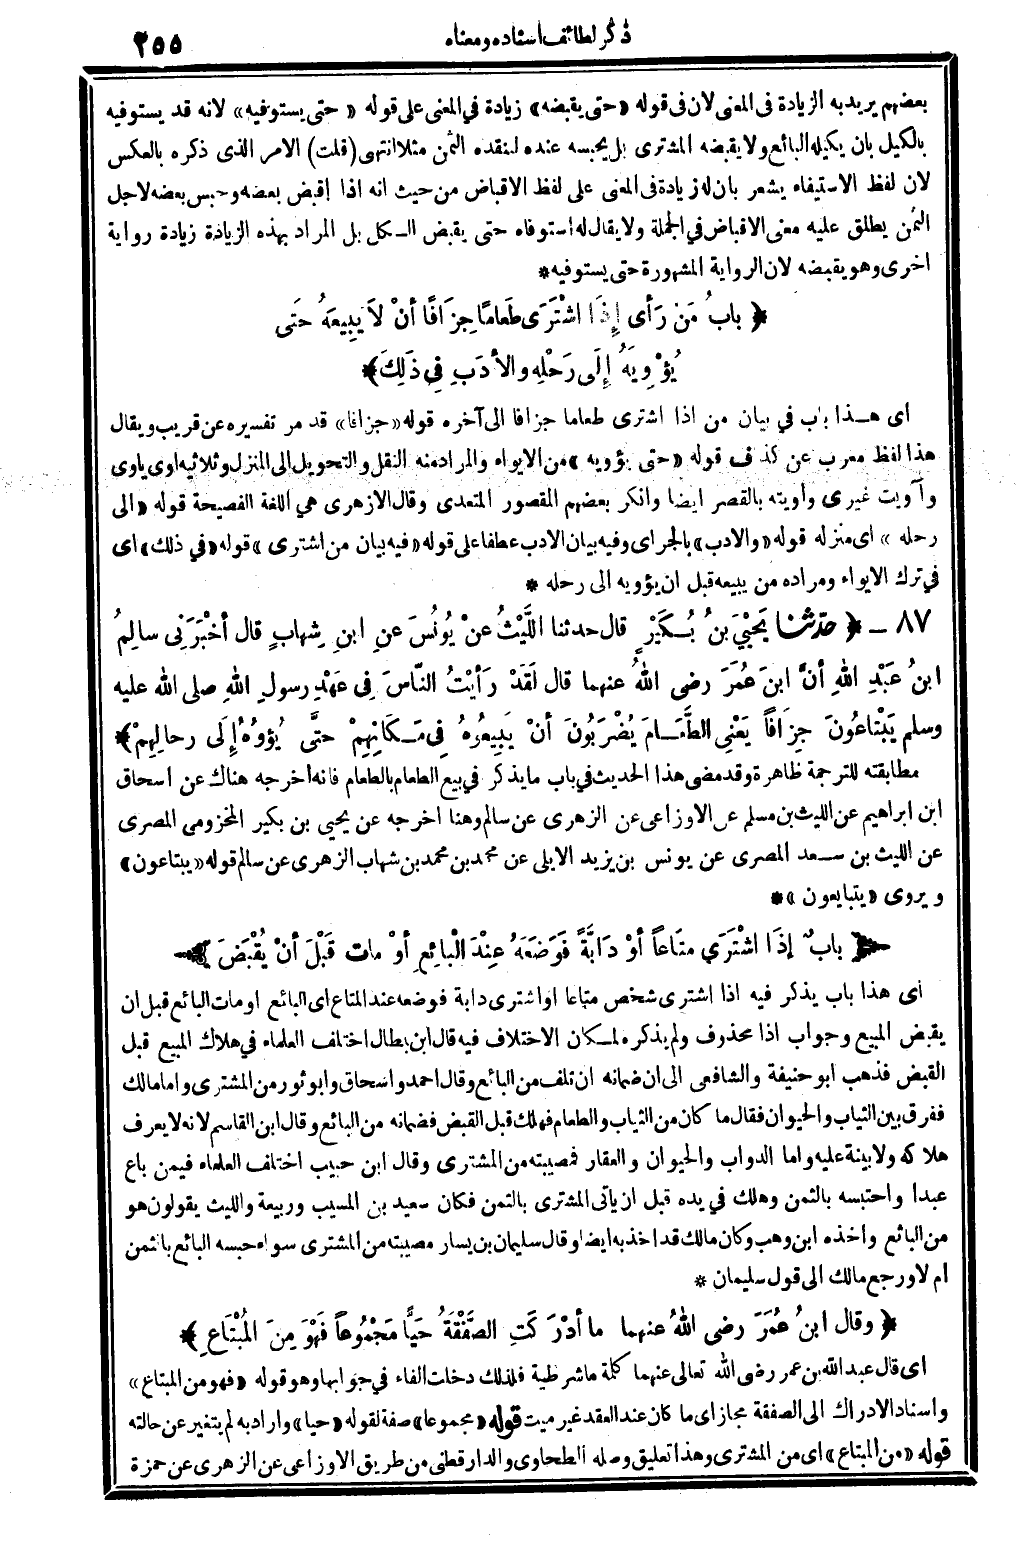 ذكر لطائف اسناده ومعناه
٢٥٥
بعضهم يريد به الزيادة فى المعنى لان فى قوله «حتى يقبضه» زيادة في المعنى على قوله « حتى يستوفيه» لانه قد يستوفيه
بالكيل بان يكيله البائع ولا يقبضه المشترى بل يحبسه عنده لينقده الثمن مثلا انتهى (قلت) الامر الذى ذكره بالعكس
لان لفظ الاستيفاء يشعر بان له زيادة فى المعنى على لفظ الاقباض من حيث انه اذا اقبض بعضه وحبس بعضه لاجل
الثمن يطلق عليه معنى الاقباض في الجملة ولا يقال له استوفاه حتى يقبض الكل بل المراد بهذه الزيادة زيادة رواية
اخرى وهو يقبضه لان الرواية المشهورة حتى يستوفيه*
﴿ بابُ مَن رَأى إذَا اشْتَرَى طَعَامًا جِزَافًا أنْ لاَ يَبِيعَهُ حَتى
يُؤْوِيَهُ إلَى رَحْلِهِ والأدَبِ فِي ذَلِكَ﴾
اى هـذا باب في بيان من اذا اشترى طعاما جزافا الى آخره قوله «جزافا» قد مر تفسيره عن قريب ويقال
هذا لفظ معرب عن كذف قوله «حتى يؤويه» من الايواء والمراد منه النقل والتحويل الى المنزل وثلاثيه اوى ياوى
وآويت غيرى وأويته بالقصر ايضا وانكر بعضهم المقصور المتعدى وقال الازهرى هي اللغة الفصيحة قوله «الى
رحله» اى منزله قوله «والادب» بالجر اى وفيه بيان الادب عطفا على قوله «فيه بيان من اشترى» قوله «في ذلك» اى
في ترك الايواء ومراده من يبيعه قبل ان يؤويه الى رحله *
٨٧ - ﴿ حدّثنا يَحْيَى بنُ بُـكَيْرٍ قال حدثنا اللَّيْثُ عنْ يُونُسَ عنِ ابنِ شِهابٍ قال أخْبَرَنِى سالِمُ
ابنُ عَبْدِ اللهِ أنَّ ابنَ عُمَرَ رضى اللهُ عنهما قال لَقَدْ رَأيْتُ النّاسَ فِى عَهْدِ رسولِ اللهِ صلى الله عليه
وسلم يَبْتَاعُونَ جِزَافًا يَعْنِى الطَّعَـامَ يُضْرَبُونَ أنْ يَبِيعُوهُ فِى مَـكَانِهِمْ حتَّى يُؤوُهُ إلَى رحالِهِمْ﴾
مطابقته للترجمة ظاهرة وقد مضى هذا الحديث في باب ما يذكر في بيع الطعام بالطعام فانه اخرجه هناك عن اسحاق
ابن ابراهيم عن الليث بن مسلم عن الاوزاعى عن الزهرى عن سالم وهنا اخرجه عن يحيى بن بكير المخزومى المصرى
عن الليث بن سـعد المصرى عن يونس بن يزيد الايلى عن محمد بن محمد بن شهاب الزهرى عن سالم قوله «يبتاعون»
ويروى «يتبايعون»*
﴿ بابٌ إذَا اشْتَرَى متَاعاً أوْ دَابَّةً فَوَضَعَهُ عِنْدَ الْبائِعِ أوْ مات قَبْلَ أنْ يُقْبَضَ ﴾
أى هذا باب يذكر فيه اذا اشترى شخص متاعا او اشترى دابة فوضعه عند المتاع اى البائع او مات البائع قبل ان
يقبض المبيع وجواب اذا محذوف ولم يذكره لمـكان الاختلاف فيه قال ابن بطال اختلف العلماء في هلاك المبيع قبل
القبض فذهب ابو حنيفة والشافعى الى ان ضمانه ان تلف من البائع وقال احمد واسحاق وابو ثور من المشترى واما مالك
ففرق بين الثياب والحيوان فقال ما كان من الثياب والطعام فهلك قبل القبض فضمانه من البائع وقال ابن القاسم لانه لا يعرف
هلاكه ولا بينة عليه واما الدواب والحيوان والعقار فمصيبته من المشترى وقال ابن حبيب اختلف العلماء فيمن باع
عبدا واحتبسه بالثمن وهلك في يده قبل ان ياتى المشترى بالثمن فكان سعيد بن المسيب وربيعة والليث يقولون هو
من البائع واخذه ابن وهب وكان مالك قد اخذ به ايضا وقال سليمان بن يسار مصيبته من المشترى سواء حبسه البائع بالثمن
ام لا ورجع مالك الى قول سليمان *
﴿ وقال ابنُ عُمَرَ رضى اللهُ عنهما ما أدْرَكَتِ الصَّفْقَةُ حَيًّا مَجْمُوعاً فَهْوَ مِنَ المُبْتَاعِ ﴾
اى قال عبد الله بن عمر رضى الله تعالى عنهما كلمة ما شرطية فلذلك دخلت الفاء في جوابها وهو قوله «فهو من المبتاع»
واسناد الادراك الى الصفقة مجاز اى ما كان عند العقد غير ميت قوله «مجموعا» صفة لقوله «حيا» واراد به لم يتغير عن حالته
قوله «من المبتاع» اى من المشترى وهذا تعليق وصله الطحاوى والدارقطنى من طريق الاوزاعى عن الزهرى عن حمزة